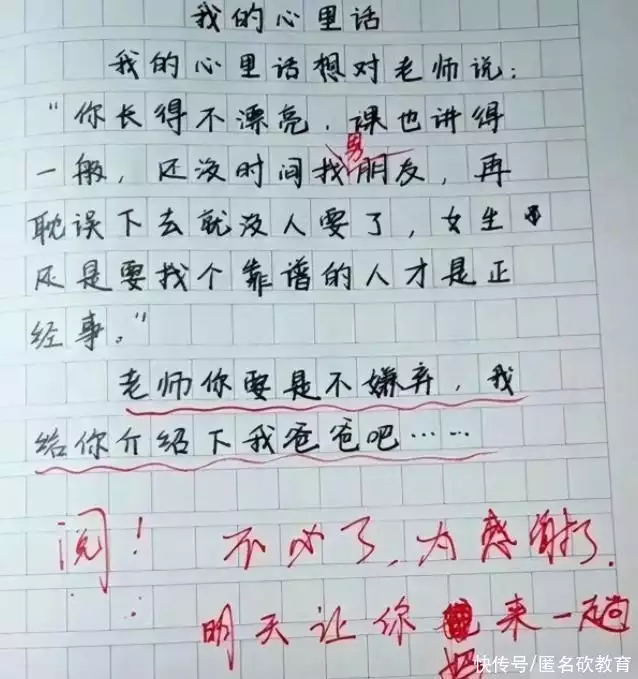 我的心里话
我的心里话想对老师说:
“你长得不漂亮,课也讲得
男
一般,还没时间找朋友,再
耽误下去就没人要了,女生
还是要找个靠谱的人才是正
经事。”
老师你要是不嫌弃,我
给你介绍下我爸爸吧……
阅! 不必了,太感谢了.
明天让你爸来一趟
快传号/匿名砍教育